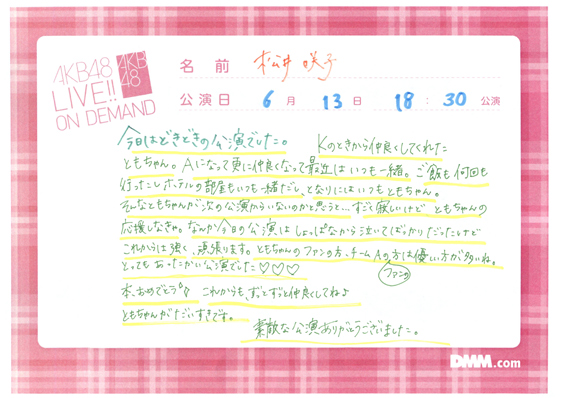 AKB48
LIVE!!
ON DEMAND
AKB
48
名前 松井咲子
公演日 6月 13日 18:30 公演
今日はどきどきの公演でした。 Kのときから仲良くしてくれた
ともちゃん。Aになって更に仲良くなって最近はいつも一緒。ご飯も何回も
行ったしホテルの部屋もいつも一緒だし、となりにはいつもともちゃん。
そんなともちゃんが次の公演からいないのかと思うと…すごく寂しいけど ともちゃんの
応援しなきゃ。なんか今日の公演は しょっぱなから泣いてばっかりだったけど
これからは強く、頑張ります。ともちゃんのファンの方、チームAの方は優しい方が多いね。
ファンの
とってもあったかい公演でした♡♡♡
本、おめでとう これからも、ずっとずっと仲良くしてねょ
ともちゃんがだいすきです。
素敵な公演ありがとうございました。
DMM.com